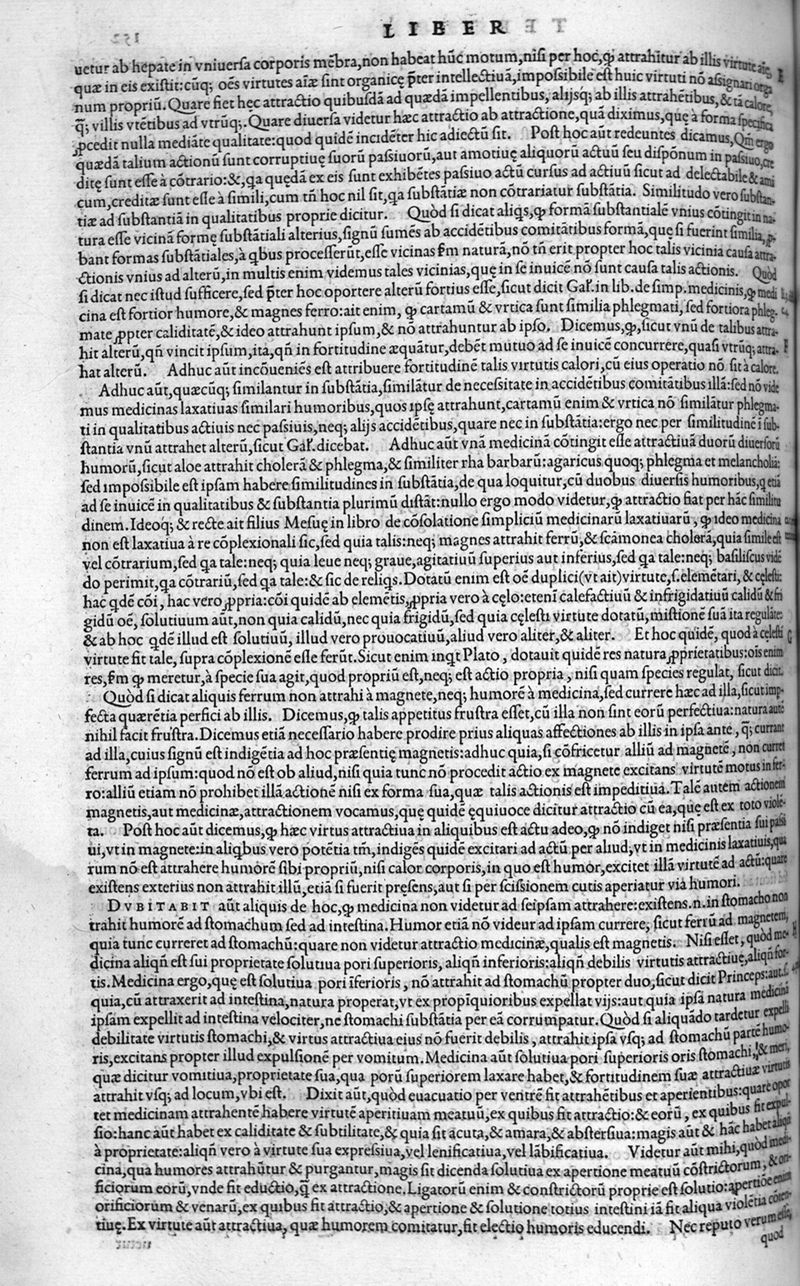 LIBER
uetur ab hepate in vniuersa corporis mẽbra, non habeat hũc motum, nisi per hoc, ꝙ attrahĩtur ab illis virtute
quæ in eis existit: cũq; oẽs virtutes aĩæ sint organicę p̃ter intellectiuã, impossibile est huic virtuti nõ assignari orga
num propriũ. Quare fiet hęc attractio quibusdã ad quædã impellentibus, alijsq; ab illis attrahẽtibus, & tã calore
q̃; villis vtẽtibus ad vtrũq;. Quare diuersa videtur hæc attractio ab attractione, quã diximus, quę à forma specifica
ꝓcedit nulla mediãte qualitate: quod quidẽ incidẽter hic adiectũ sit. Post hoc aũt redeuntes dicamus,
quædã talium actionũ sunt corruptiuę suorũ passiuorũ, aut amotiuę aliquorũ actuũ seu dispõnum in passiuo, cre
ditę sunt esse à cõtrario: &, ꝗa quędã ex eis sunt exhibẽtes passiuo actũ cursus ad actiuũ sicut ad delectabile & ami
cum, creditæ sunt esse à simili, cum tñ hoc nil sit, ꝗa substãtiæ non cõtrariatur substãtia. Similitudo vero substan
tiæ ad substantiã in qualitatibus proprie dicitur. Quòd si dicat aliꝗs, ꝙ formã substantialẽ vnius cõtingit in na
tura esse vicinã formę substãtiali alterius, signũ sumẽs ab accidẽtibus comitãtibus formã, quę si fuerint similia, ꝓ
bant formas substãtiales, à ꝗbus processerũt, esse vicinas fm̃ naturã, nõ tñ erit propter hoc talis vicinia causa attra
ctionis vnius ad alterũ, in multis enim videmus tales vicinias, quę in se inuicẽ nõ sunt causa talis actionis. Quòd
si dicat nec istud sufficere, sed p̃ter hoc oportere alterũ fortius esse, sicut dicit Gal̃. in lib. de simp. medicinis, ꝙ medi
cina est fortior humore, & magnes ferro: ait enim, ꝙ cartamũ & vrtica sunt similia phlegmati, sed fortiora phleg
mate ꝓpter caliditatẽ, & ideo attrahunt ipsum, & nõ attrahuntur ab ipso. Dicemus, ꝙ, sicut vnũ de talibus attra
hit alterũ, qñ vincit ipsum, ita, qñ in fortitudine æquãtur, debẽt mutuo ad se inuicẽ concurrere, quasi vtrũq; attra
hat alterũ. Adhuc aũt incõueniẽs est attribuere fortitudinẽ talis virtutis calori, cũ eius operatio nõ sit à calore.
Adhuc aũt, quæcũq; similantur in substãtia, similãtur de necessitate in accidẽtibus comitãtibus illã: sed nõ vide
mus medicinas laxatiuas similari humoribus, quos ipsę attrahunt, cartamũ enim & vrtica nõ similãtur phlegma
ti in qualitatibus actiuis nec passiuis, neq; alijs accidẽtibus, quare nec in substãtia: ergo nec per similitudinẽ ĩ sub
stantia vnũ attrahet alterũ, sicut Gal̃. dicebat. Adhuc aũt vnã medicinã cõtingit esse attractiuã duorũ diuersorũ
humorũ, sicut aloe attrahit cholerã & phlegma, & similiter rha barbarũ: agaricus quoq; phlegma et melancholiã:
sed impossibile est ipsam habere similitudines in substãtia, de qua loquitur, cũ duobus diuersis humoribus, ꝗ etiã
ad se inuicẽ in qualitatibus & substantia plurimũ distãt: nullo ergo modo videtur, ꝙ attractio fiat per hãc similitu
dinem. Ideoq; & recte ait filius Mesuę in libro de cõsolatione simpliciũ medicinarũ laxatiuarũ, ꝙ ideo medicina
non est laxatiua à re cõplexionali sic, sed quia talis: neq; magnes attrahit ferrũ, & scãmonea cholerã, quia simile est
vel cõtrarium, sed ꝗa tale: neq; quia leue neq; graue, agitatiuũ superius aut inferius, sed ꝗa tale: neq; basiliscus vidẽ
do perimit, ꝗa cõtrariũ, sed ꝗa tale: & sic de reliꝗs. Dotatũ enim est oẽ duplici (vt ait) virtute, s. elemẽtari, & cęlesti:
hac ꝗdẽ cõi, hac vero ꝓpria: cõi quidẽ ab elemẽtis, ꝓpria vero à cęlo: etenĩ calefactiuũ & infrigidatiuũ calidũ & fri
gidũ oẽ, solutiuum aũt, non quia calidũ, nec quia frigidũ, sed quia cęlesti virtute dotatũ, mistionẽ suã ita regulãte:
& ab hoc ꝗdẽ illud est solutiuũ, illud vero prouocatiuũ, aliud vero aliter, & aliter. Et hoc quidẽ, quod à cęlesti
virtute fit tale, supra cõplexionẽ esse ferũt. Sicut enim inꝗt Plato, dotauit quidẽ res natura ꝓprietatibus: oĩs enim
res, fm̃ ꝙ meretur, à specie sua agit, quod propriũ est, neq; est actio propria, nisi quam species regulat, sicut dicit.
Quòd si dicat aliquis ferrum non attrahi à magnete, neq; humorẽ à medicina, sed currere hæc ad illa, sicut imp-
fecta quærẽtia perfici ab illis. Dicemus, ꝙ talis appetitus frustra esset, cũ illa non sint eorũ perfectiua: natura autẽ
nihil facit frustra. Dicemus etiã necessario habere prodire prius aliquas affectiones ab illis in ipsa ante, q̃; currant
ad illa, cuius signũ est indigẽtia ad hoc præsentię magnetis: adhuc quia, si cõfricetur alliũ ad magnetẽ, non curret
ferrum ad ipsum: quod nõ est ob aliud, nisi quia tunc nõ procedit actio ex magnete excitans virtutẽ motus in fer-
ro: alliũ etiam nõ prohibet illã actionẽ nisi ex forma sua, quæ talis actionis est impeditiua. Talẽ autem actionem
magnetis, aut medicinæ, attractionem vocamus, quę quidẽ ęquiuoce dicitur attractio cũ ea, quę est ex toto violẽ-
ta. Post hoc aũt dicemus, ꝙ hæc virtus attractiua in aliquibus est actu adeo, ꝙ nõ indiget nisi præsentia sui passi
ui, vt in magnete: in aliꝗbus vero potẽtia tm̃, indigẽs quidẽ excitari ad actũ per aliud, vt in medicinis laxatiuis, qua
rum nõ est attrahere humorẽ sibi propriũ, nisi calor corporis, in quo est humor, excitet illã virtutẽ ad actũ: quare
existens exterius non attrahit illũ, etiã si fuerit pręsens, aut si per scissionem cutis aperiatur via humori.
DVBITABIT aũt aliquis de hoc, ꝙ medicina non videtur ad seipsam attrahere: existens. n. in stomacho non
trahit humorẽ ad stomachum sed ad intestina. Humor etiã nõ videur ad ipsam currere, sicut ferrũ ad magnetem,
quia tunc curreret ad stomachũ: quare non videtur attractio medicinæ, qualis est magnetis. Nisi esset, quòd me-
dicina aliqñ est sui proprietate solutiua pori superioris, aliqñ inferioris: aliqñ debilis virtutis attractiuę, aliqñ for-
tis. Medicina ergo, quę est solutiua pori ĩferioris, nõ attrahit ad stomachũ propter duo, sicut dicit Princeps: aut
quia, cũ attraxerit ad intestina, natura properat, vt ex propĩquioribus expellat vijs: aut quia ipsã natura medicinã
ipsam expellit ad intestina velociter, ne stomachi substãtia per eã corrumpatur. Quòd si aliquãdo tardetur expelli
debilitate virtutis stomachi, & virtus attractiua eius nõ fuerit debilis, attrahit ipsa vsq; ad stomachũ partẽ humo-
ris, excitans propter illud expulsionẽ per vomitum. Medicina aũt solutiua pori superioris oris stomachi, & meri,
quæ dicitur vomitiua, proprietate sua, qua porũ superiorem laxare habet, & fortitudinem suæ attractiuæ virtutis
attrahit vsq; ad locum, vbi est. Dixit aũt, quòd euacuatio per ventrẽ fit attrahẽtibus et aperientibus: quare opor
tet medicinam attrahentẽ habere virtutẽ aperitiuam meatuũ, ex quibus fit attractio: & eorũ, ex quibus fit expul-
sio: hanc aũt habet ex caliditate & subtilitate, & quia sit acuta, & amara, & abstersiua: magis aũt & hãc habet aliqñ
à proprietate: aliqñ vero à virtute sua expressiua, vel lenificatiua, vel lãbificatiua. Videtur aũt mihi, quòd medi-
cina, qua humores attrahũtur & purgantur, magis sit dicenda solutiua ex apertione meatuũ cõstrictorum, & ori-
ficiorum eorũ, vnde fit eductio, q̃ ex attractione. Ligatorũ enim & constrictorũ proprie est solutio: apertiõe enim
orificiorum & venarũ, ex quibus fit attractio, & apertione & solutione totius intestini iã fit aliqua violẽtia
tiuę. Ex virtute aũt attractiua, quæ humorem comitatur, fit electio humoris educendi. Nec reputo verum
quod